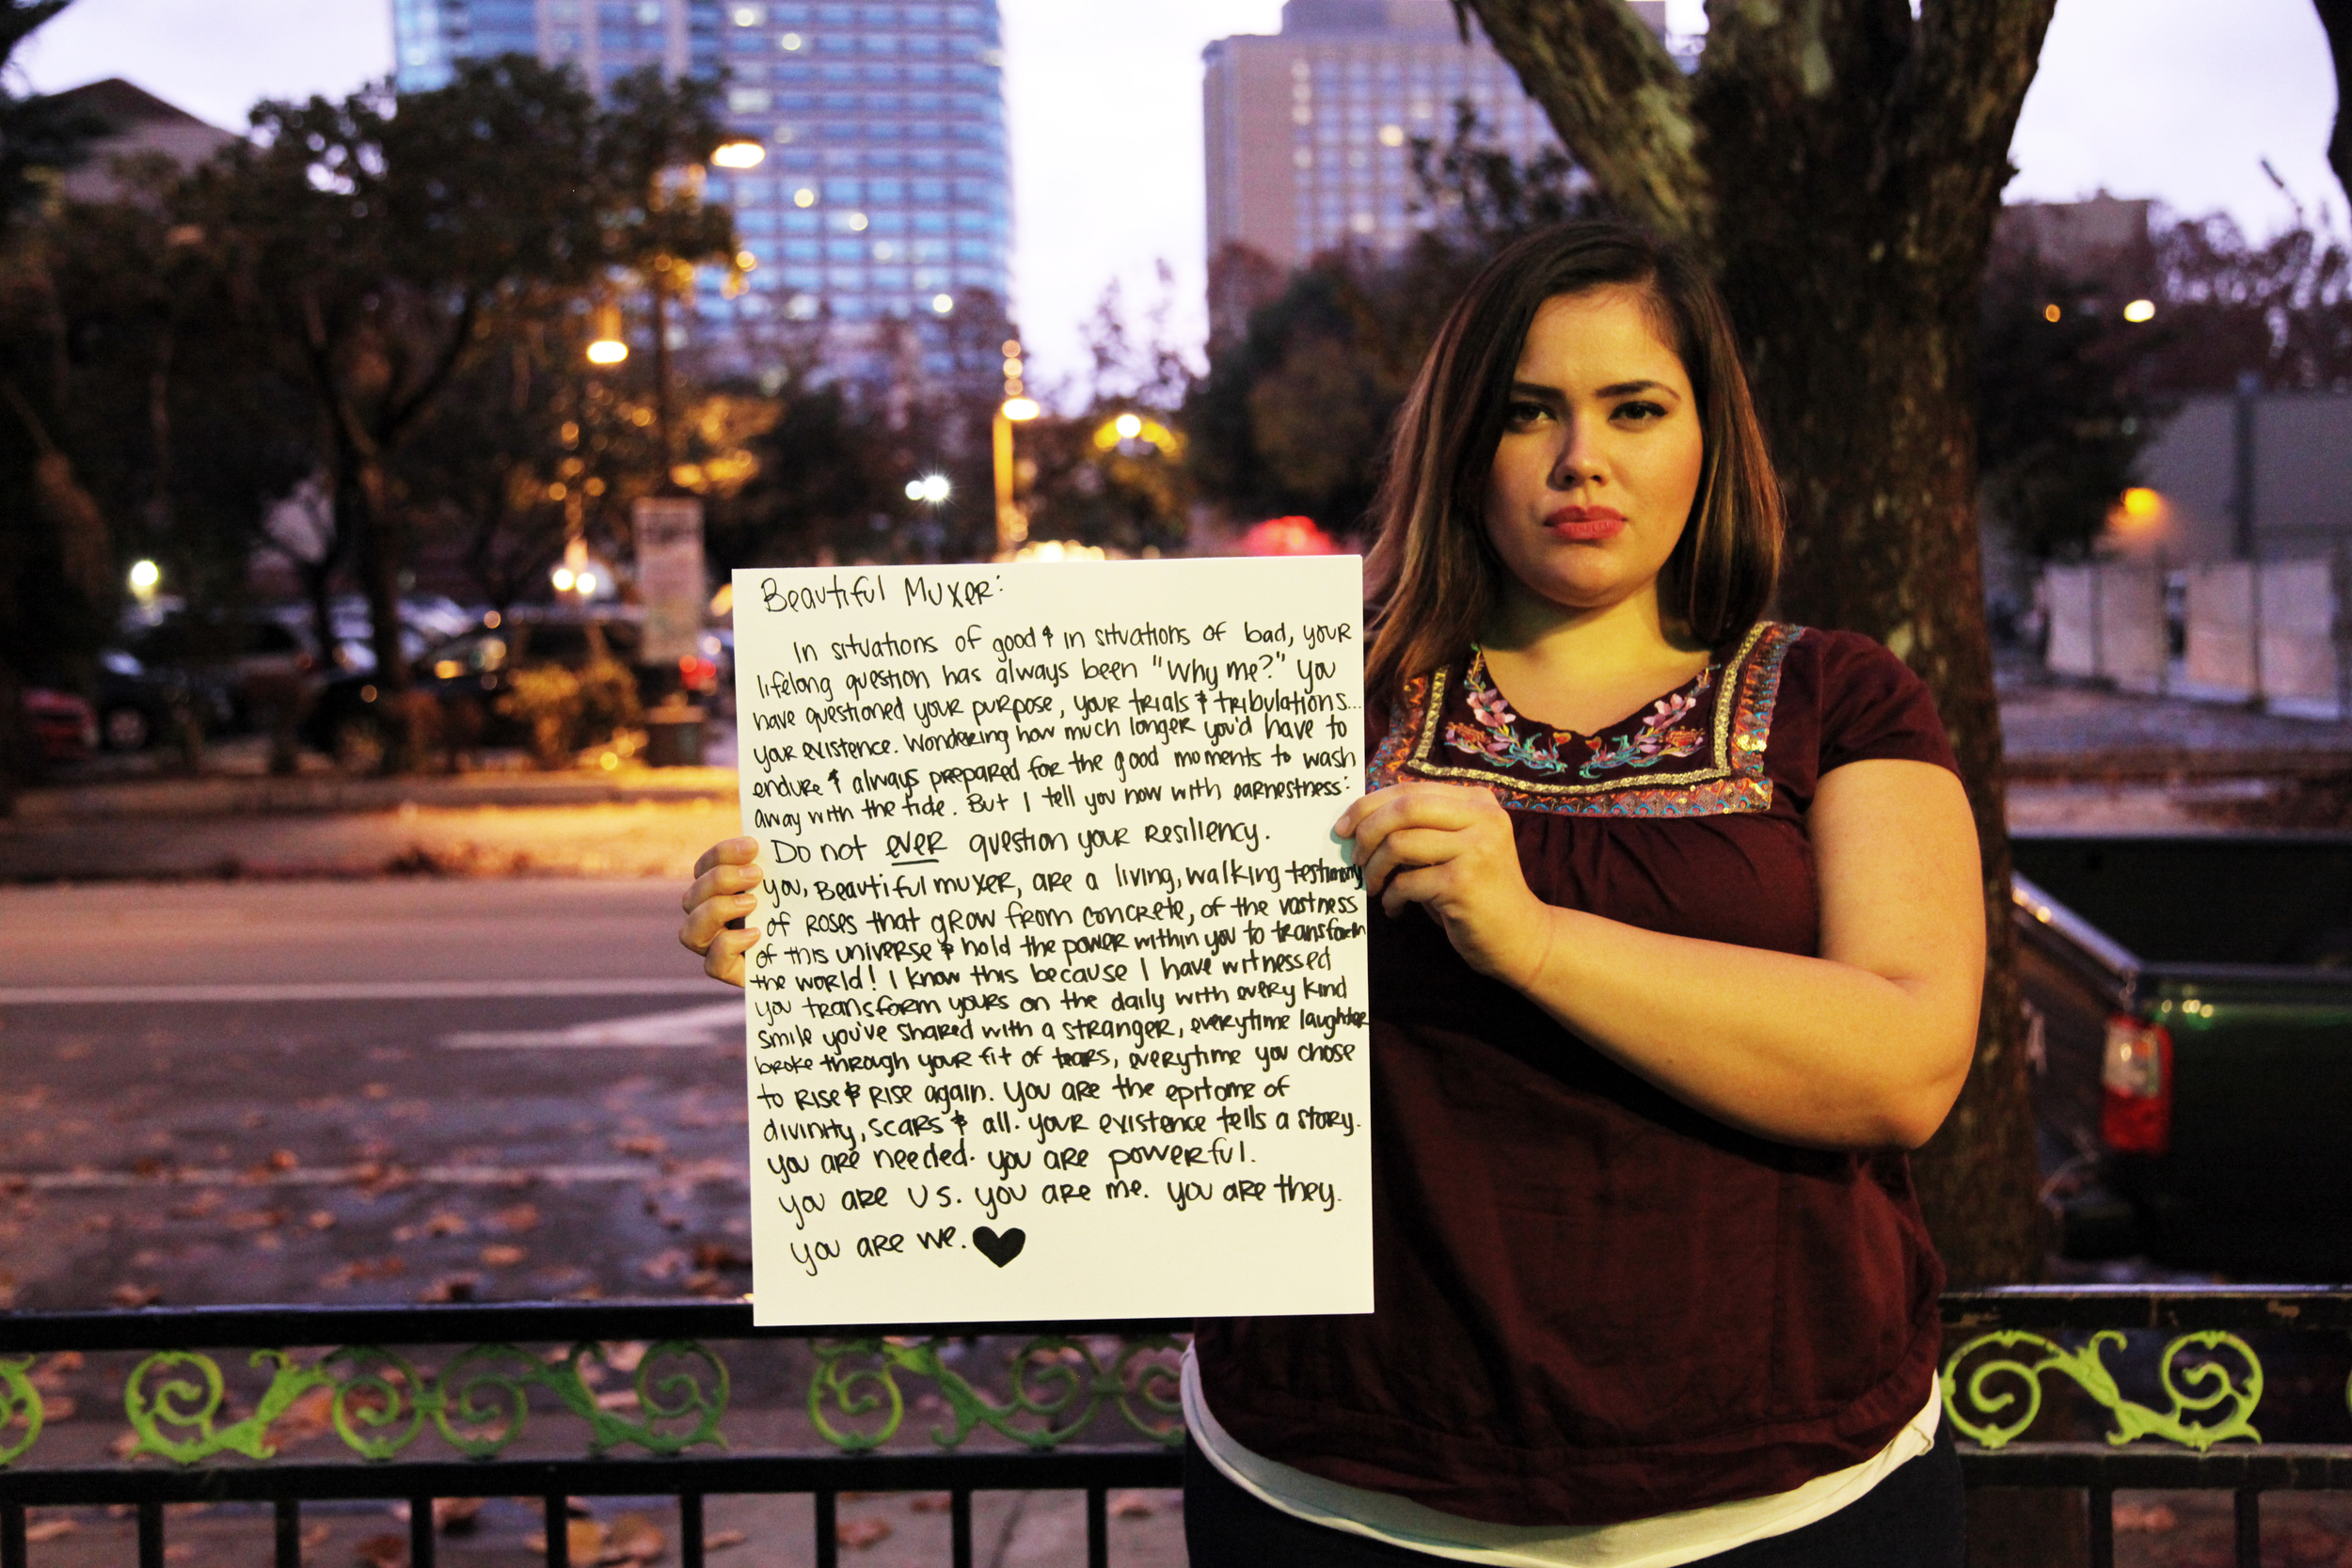 Beautiful Muxer:
In situations of good & in situations of bad, your
lifelong question has always been "Why me?" You
have questioned your purpose, your trials & tribulations...
your existence. Wondering how much longer you'd have to
endure & always prepared for the good moments to wash
away with the tide. But I tell you now with earnestness:
Do not ever question your resiliency.
you, Beautiful muxer, are a living, walking testimony
of roses that grow from concrete, of the vastness
of this universe & hold the power within you to transform
the world! I know this because I have witnessed
you transform yours on the daily with every kind
smile you've shared with a stranger, everytime laughter
broke through your fit of tears, everytime you chose
to rise & rise again. You are the epitome of
divinity, scars & all. your existence tells a story.
you are needed. you are powerful.
you are us. you are me. you are they.
you are we. ♥